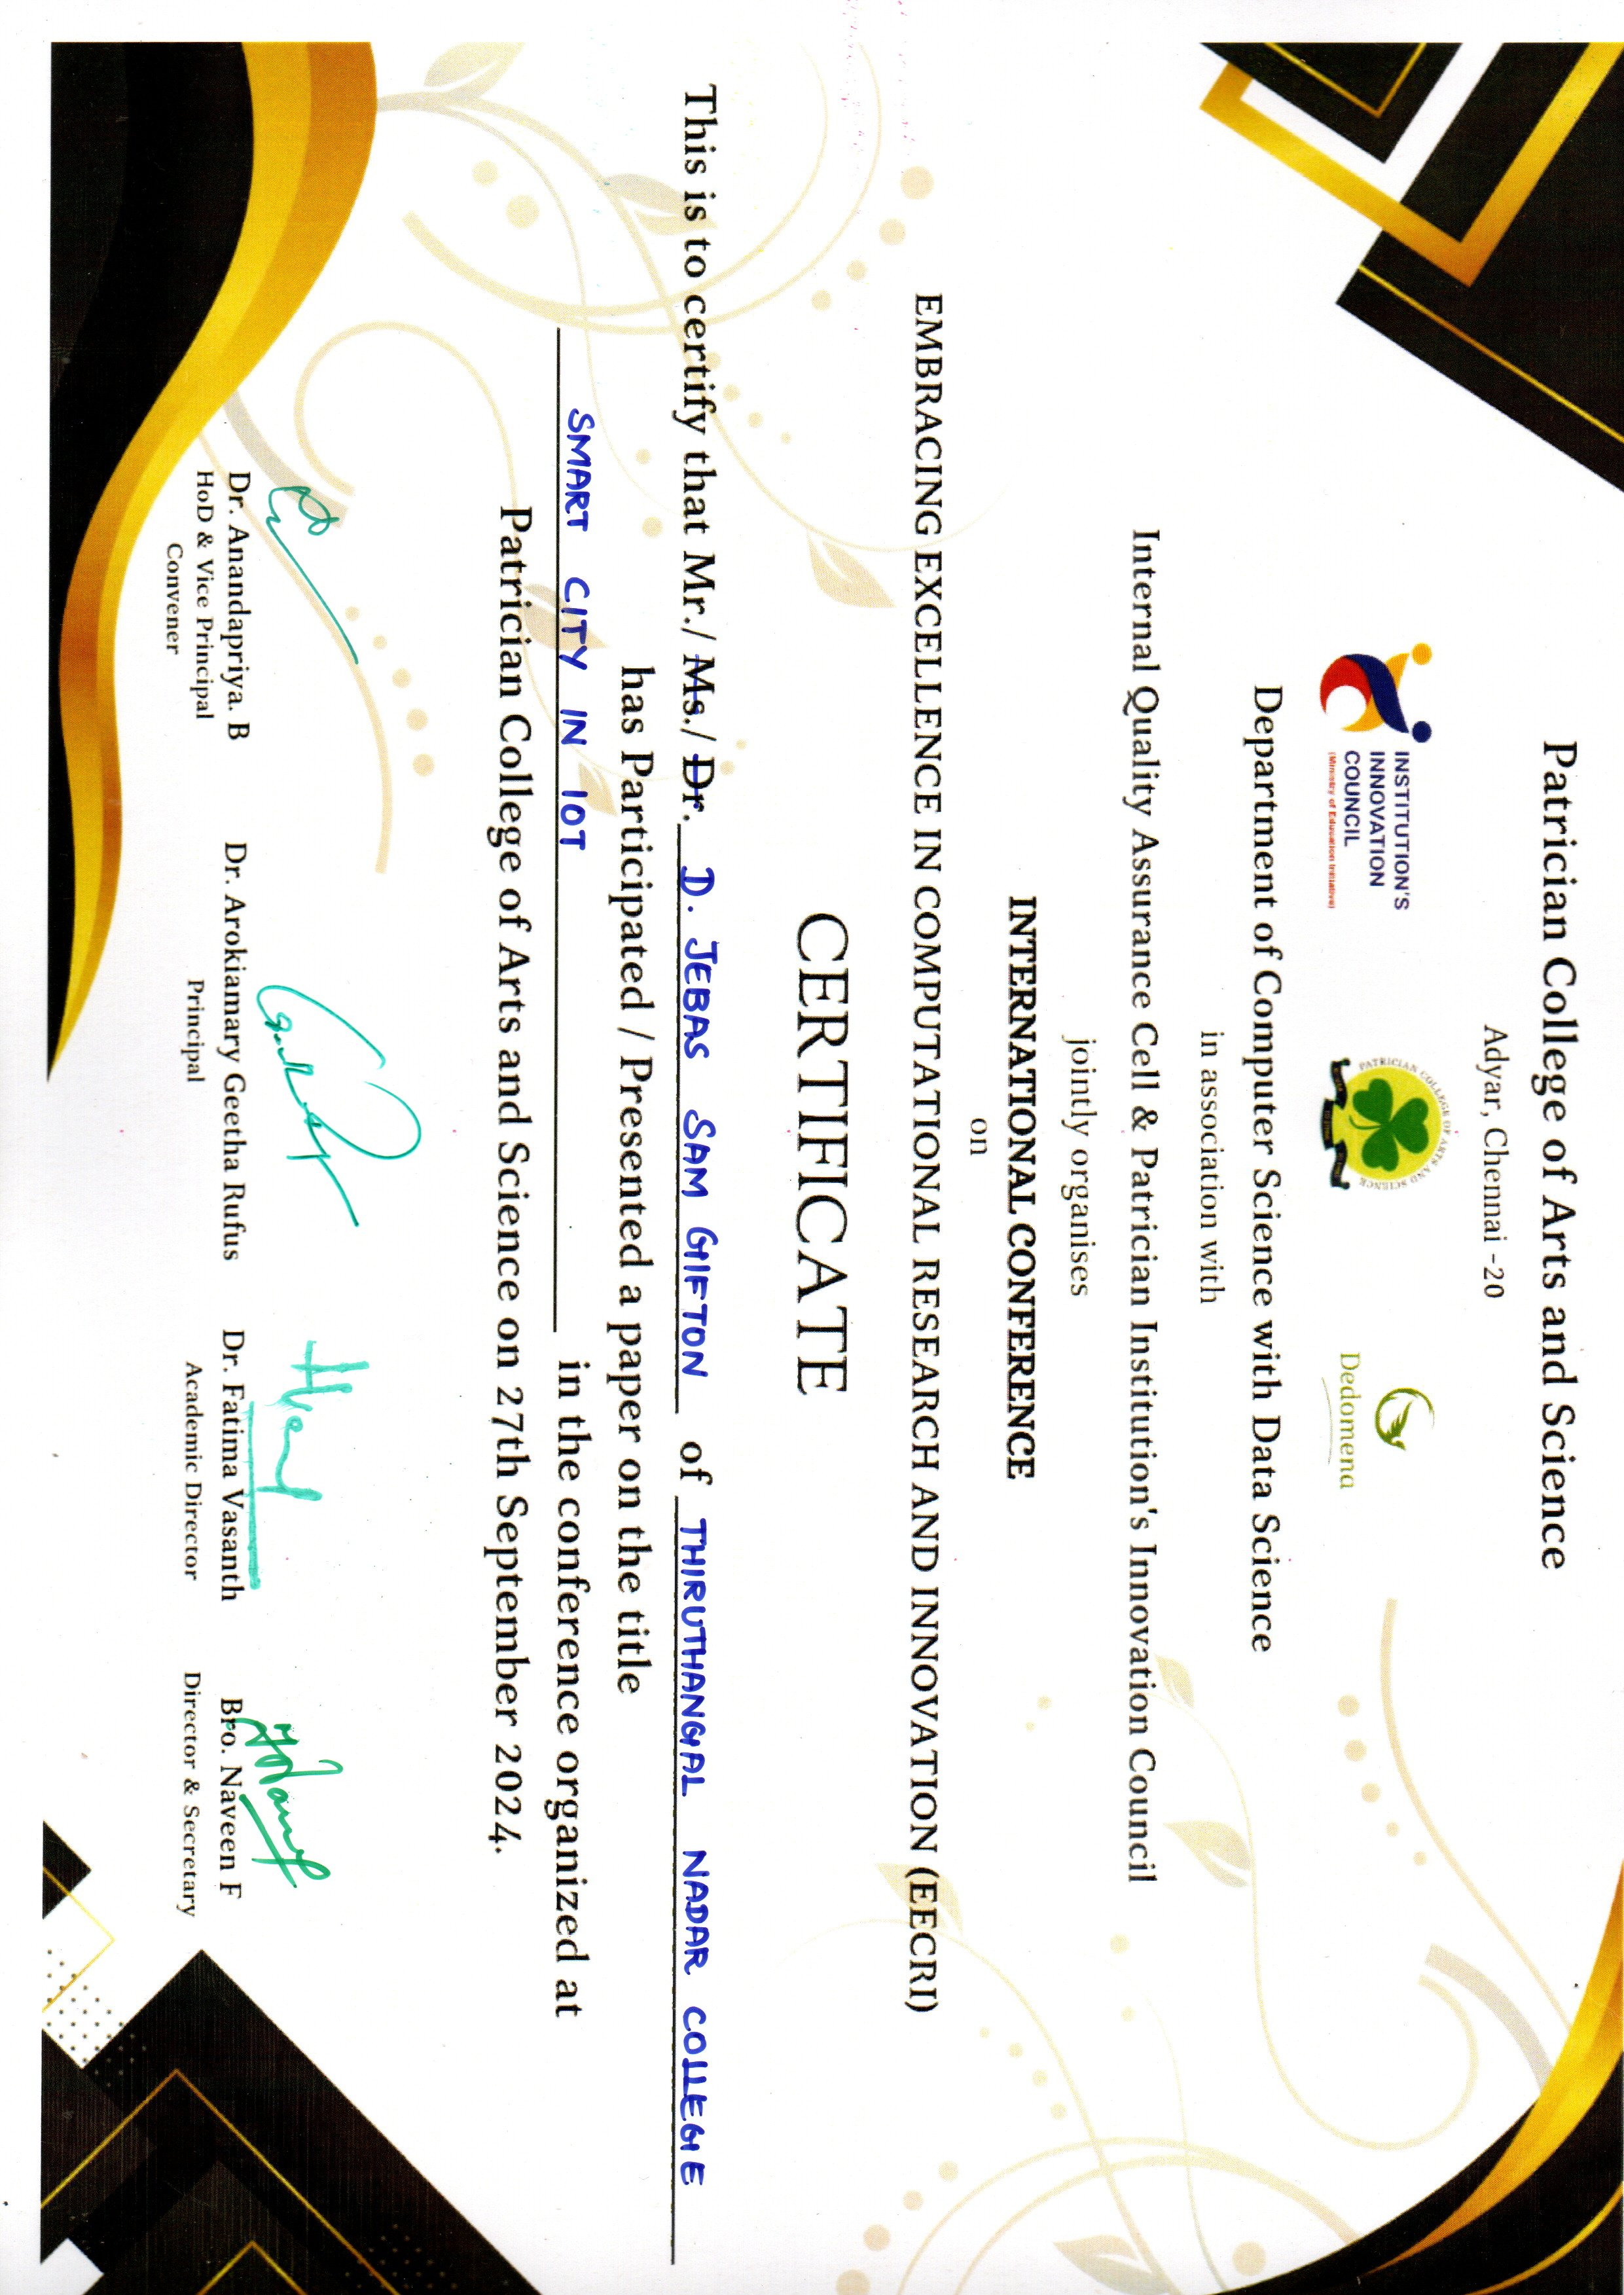 Patrician College of Arts and Science
Adyar, Chennai -20
INSTITUTION'S
INNOVATION
COUNCIL
(Ministry of Education Initiative)
PATRICIAN COLLEGE OF ARTS AND SCIENCE
Dedomena
Department of Computer Science with Data Science
in association with
Internal Quality Assurance Cell & Patrician Institution's Innovation Council
jointly organises
INTERNATIONAL CONFERENCE
on
EMBRACING EXCELLENCE IN COMPUTATIONAL RESEARCH AND INNOVATION (EECRI)
CERTIFICATE
This is to certify that Mr./ Ms./ Dr. D. JEBAS SAM GIFTON of THIRUTHANGAL NADAR COLLEGE
has Participated / Presented a paper on the title
SMART CITY IN IOT in the conference organized at
Patrician College of Arts and Science on 27th September 2024.
Dr. Anandapriya. B
HoD & Vice Principal
Convener
Dr. Arokiamary Geetha Rufus
Principal
Dr. Fatima Vasanth
Academic Director
Bro. Naveen F
Director & Secretary